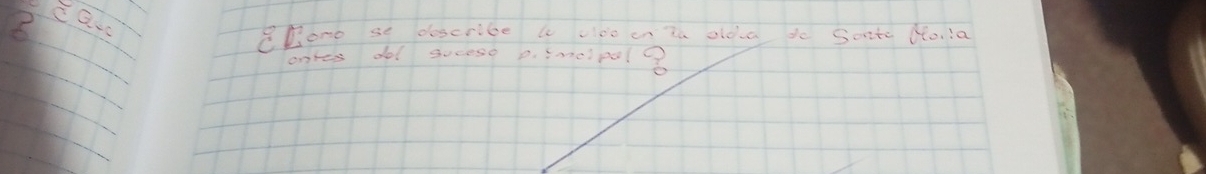 ¿Que
¿Como se describe la vida en la aldea de Santa Maria
antes del suceso principal?